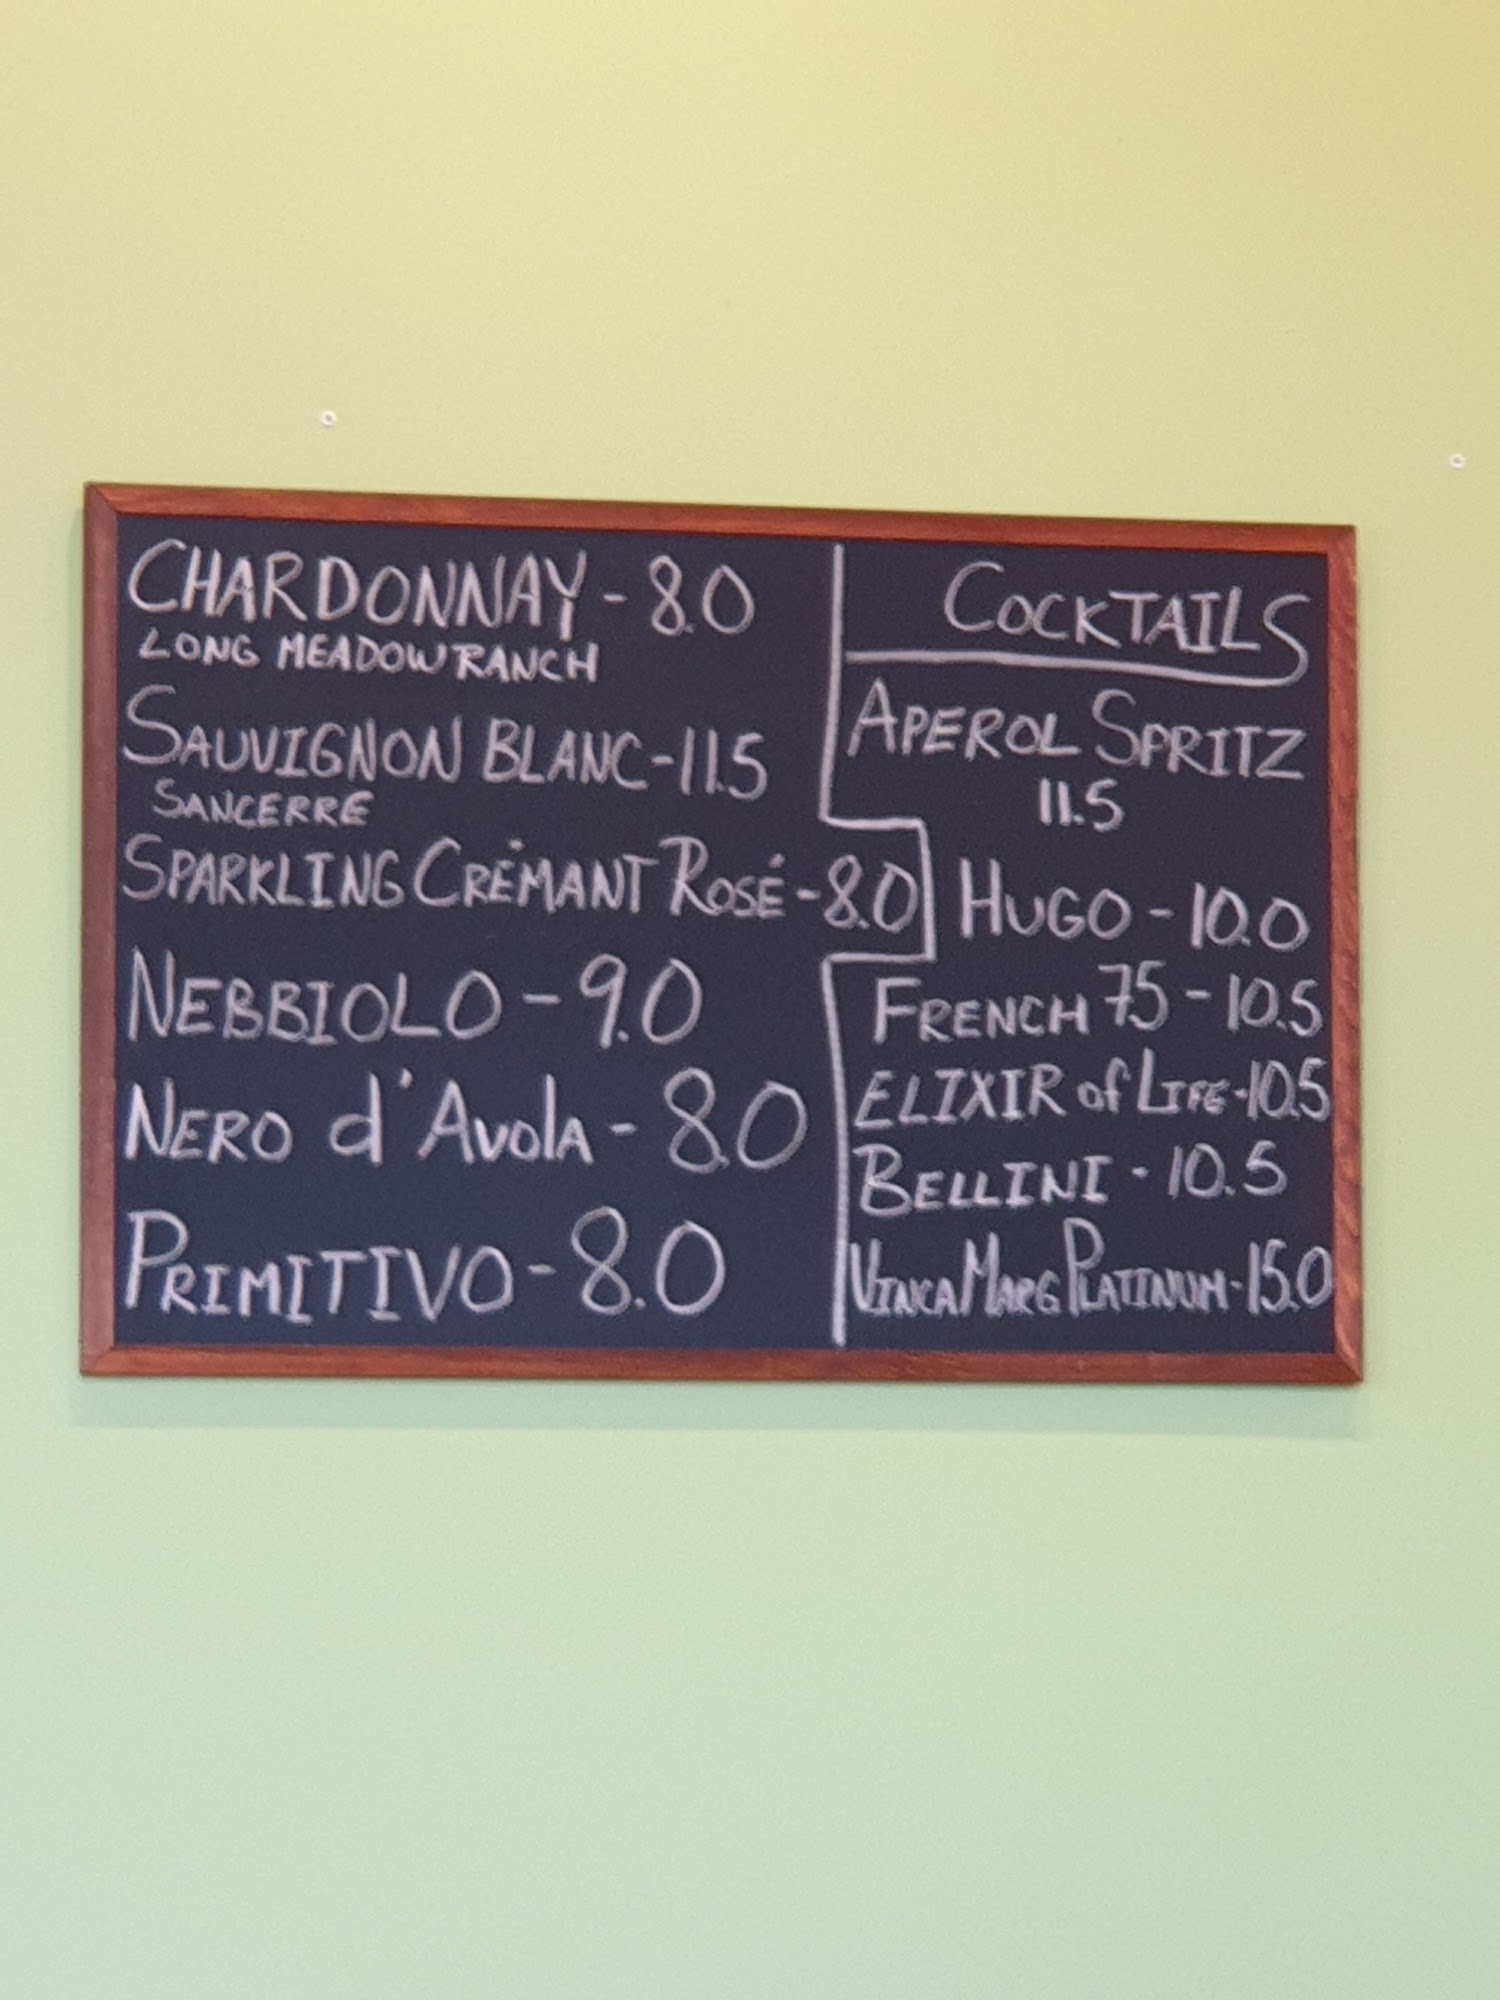 CHARDONNAY - 8.0
LONG MEADOW RANCH
SAUVIGNON BLANC - 11.5
SANCERRE
SPARKLING CRÉMANT ROSÉ - 8.0
NEBBIOLO - 9.0
NERO d'AVOLA - 8.0
PRIMITIVO - 8.0
COCKTAILS
APEROL SPRITZ
11.5
HUGO - 10.0
FRENCH 75 - 10.5
ELIXIR of LIFE - 10.5
BELLINI - 10.5
VINCA MARG PLATINUM - 15.0